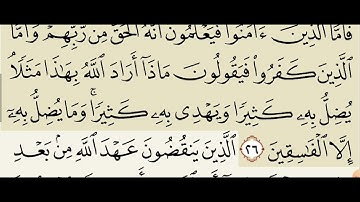 فَأَمَّا ٱلَّذِينَ ءَامَنُوا۟ فَيَعْلَمُونَ أَنَّهُ ٱلْحَقُّ مِن رَّبِّهِمْ وَأَمَّا
ٱلَّذِينَ كَفَرُوا۟ فَيَقُولُونَ مَاذَآ أَرَادَ ٱللَّهُ بِهَـٰذَا مَثَلًا
يُضِلُّ بِهِۦ كَثِيرًا وَيَهْدِى بِهِۦ كَثِيرًا ۚ وَمَا يُضِلُّ بِهِۦٓ
إِلَّا ٱلْفَـٰسِقِينَ ٢٦ ٱلَّذِينَ يَنقُضُونَ عَهْدَ ٱللَّهِ مِنۢ بَعْدِ